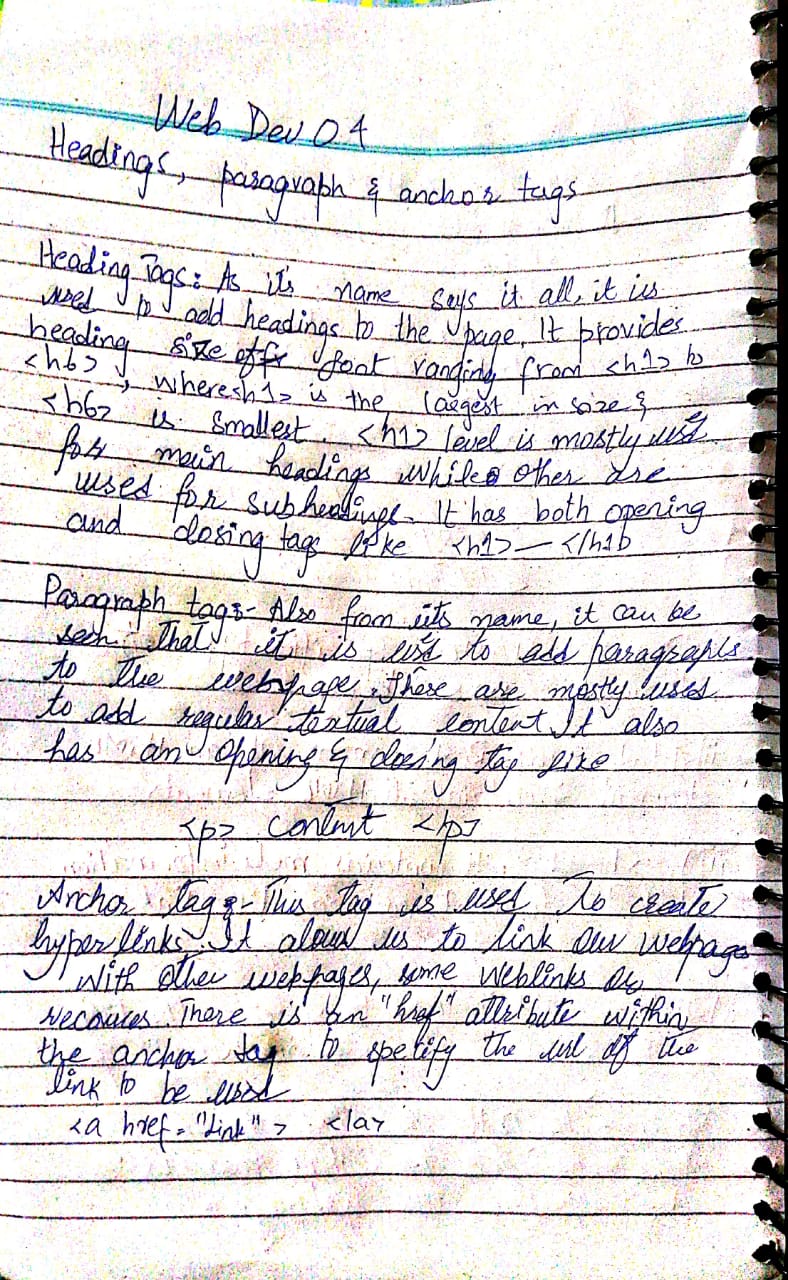 Web Dev 04
Headings, paragraph & anchor tags
Heading Tags: As it's name says it all, it is
used to add headings to the page. It provides
heading size of font ranging from <h1> to
<h6>, where <h1> is the largest in size &
<h6> is smallest. <h1> level is mostly used
for main headings while other are
used for subheadings. It has both opening
and closing tags like <h1> — </h1>
Paragraph tag:- Also from its name, it can be
seen that it is used to add paragraphs
to the webpage. These are mostly used
to add regular textual content. It also
has an opening & closing tag like
<p> content </p>
Anchor tag:- This tag is used to create
hyperlinks. It allows us to link our webpages
with other webpages, some weblinks or
recources. There is an "href" attribute within
the anchor tag to spetify the url of the
link to be used
<a href="Link"> </a>